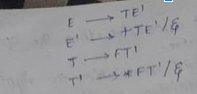 E → TE'
E' → +TE'/ε
T → FT'
T' → *FT'/ε